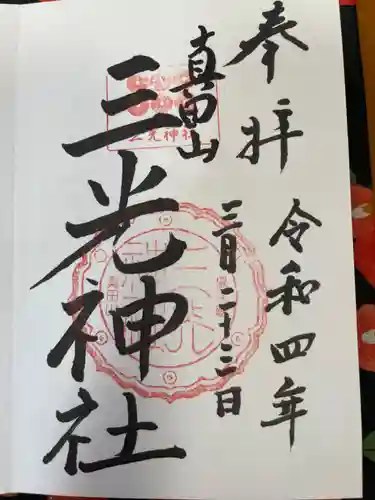 奉拝
令和四年
真田山
三月二十三日
三光神社
三光神社